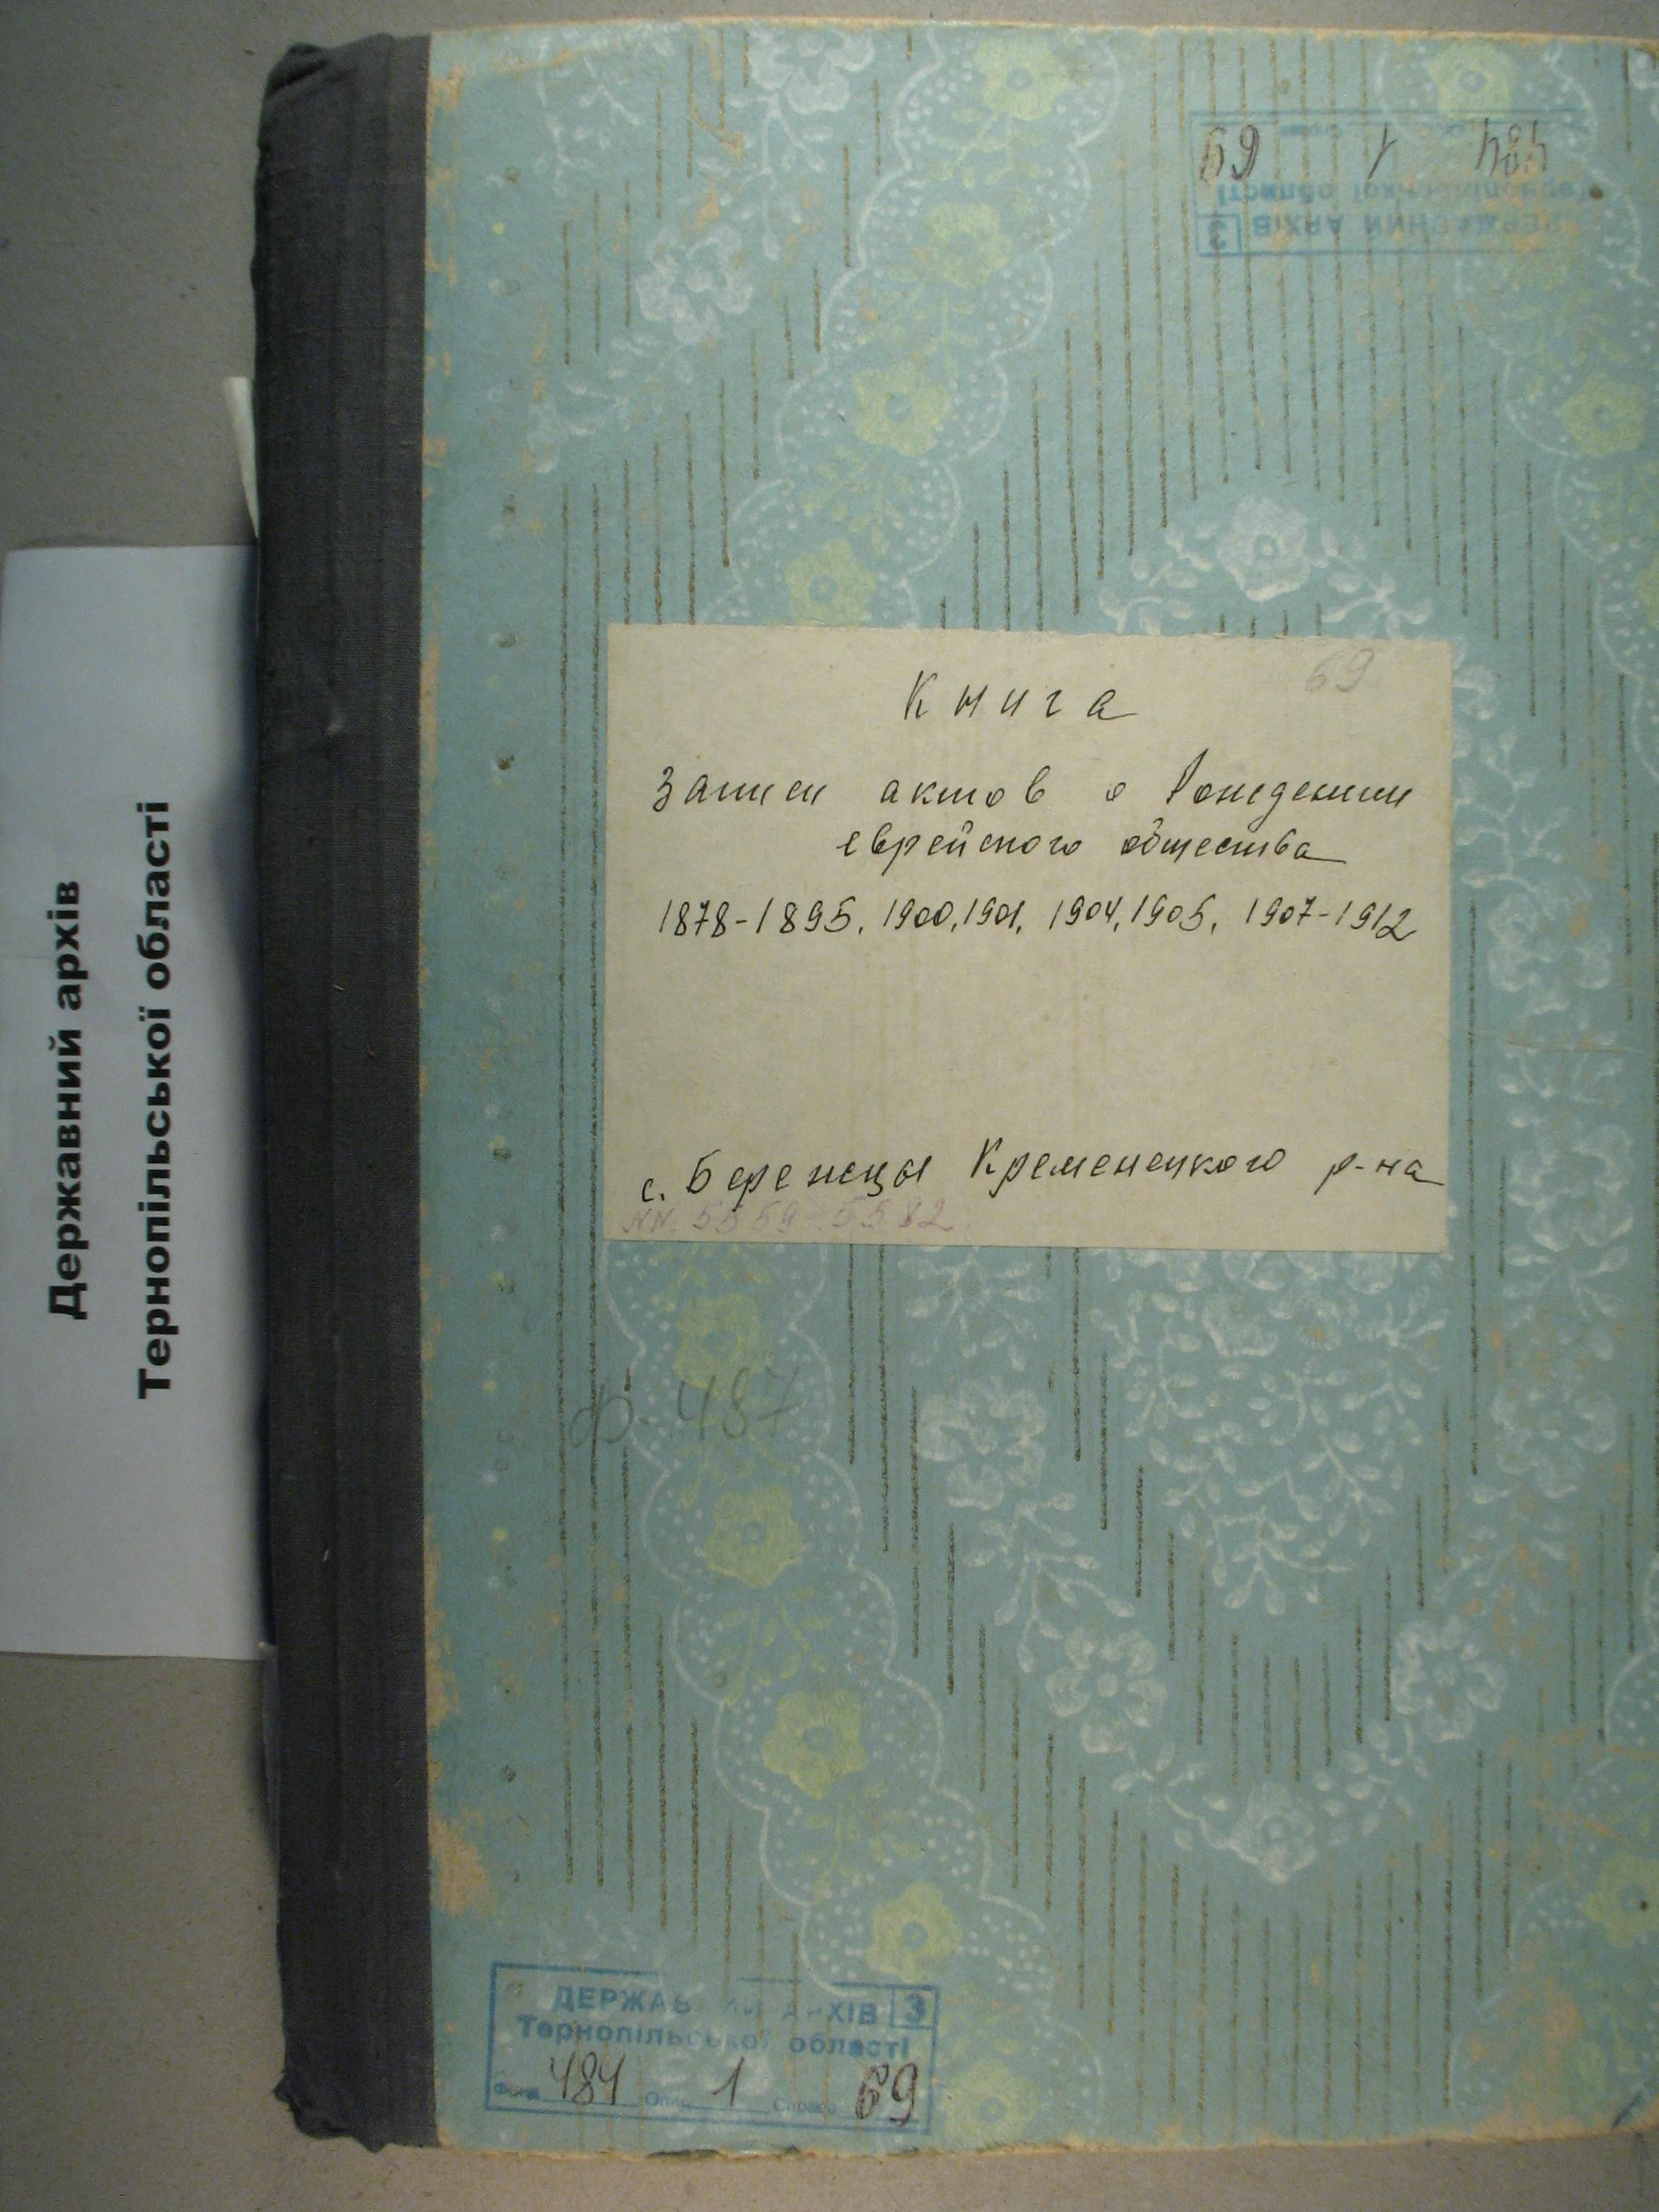 Державний архів
Тернопільської області
69 1 484
Тернопільської області
ДЕРЖАВНИЙ АРХІВ 3
69
Книга
Записи актов о Рождении
еврейского общества
1878-1895, 1900, 1901, 1904, 1905, 1907-1912
с. Бережцы Кременецкого р-на
NN. 5559-5582.
Ф. 487
ДЕРЖАВНИЙ АРХІВ 3
Тернопільської області
Фонд 484 Опис 1 Справа 69